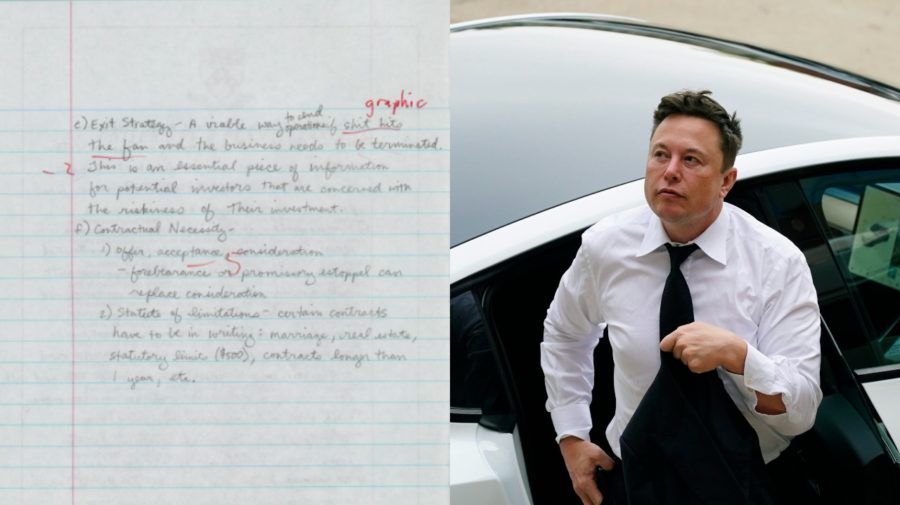 graphic
to end
e) Exit Strategy - A viable way operations if shit hits
the fan and the business needs to be terminated.
-2 This is an essential piece of information
for potential investors that are concerned with
the riskiness of their investment.
f) Contractual Necessity -
1) Offer, acceptance, consideration
- forebearance or promissory estoppel can
replace consideration
2) Statute of limitations - certain contracts
have to be in writing: marriage, real estate,
statutory limit ($500), contracts longer than
1 year, etc.